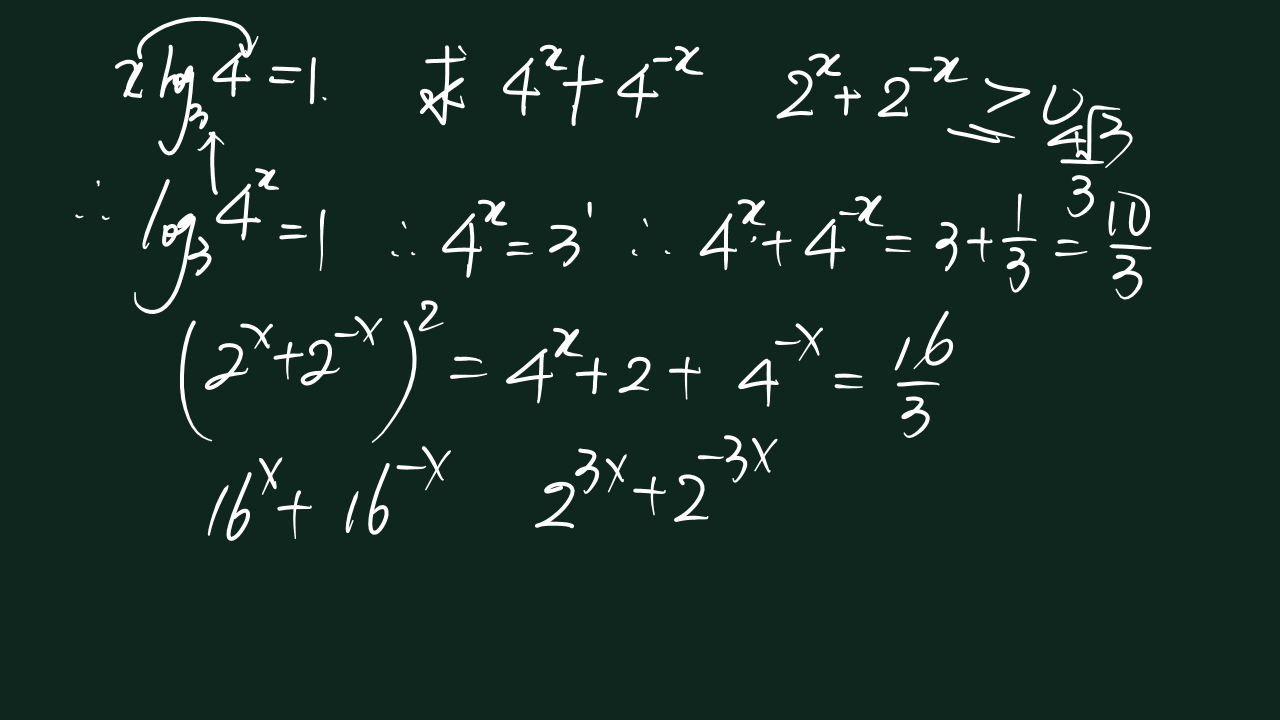 x log₃ 4 = 1. 求 4ˣ + 4⁻ˣ 2ˣ + 2⁻ˣ ≥ 0 4√3/3
∴ log₃ 4ˣ = 1 ∴ 4ˣ = 3¹ ∴ 4ˣ + 4⁻ˣ = 3 + 1/3 = 10/3
(2ˣ + 2⁻ˣ)² = 4ˣ + 2 + 4⁻ˣ = 16/3
16ˣ + 16⁻ˣ 2³ˣ + 2⁻³ˣ